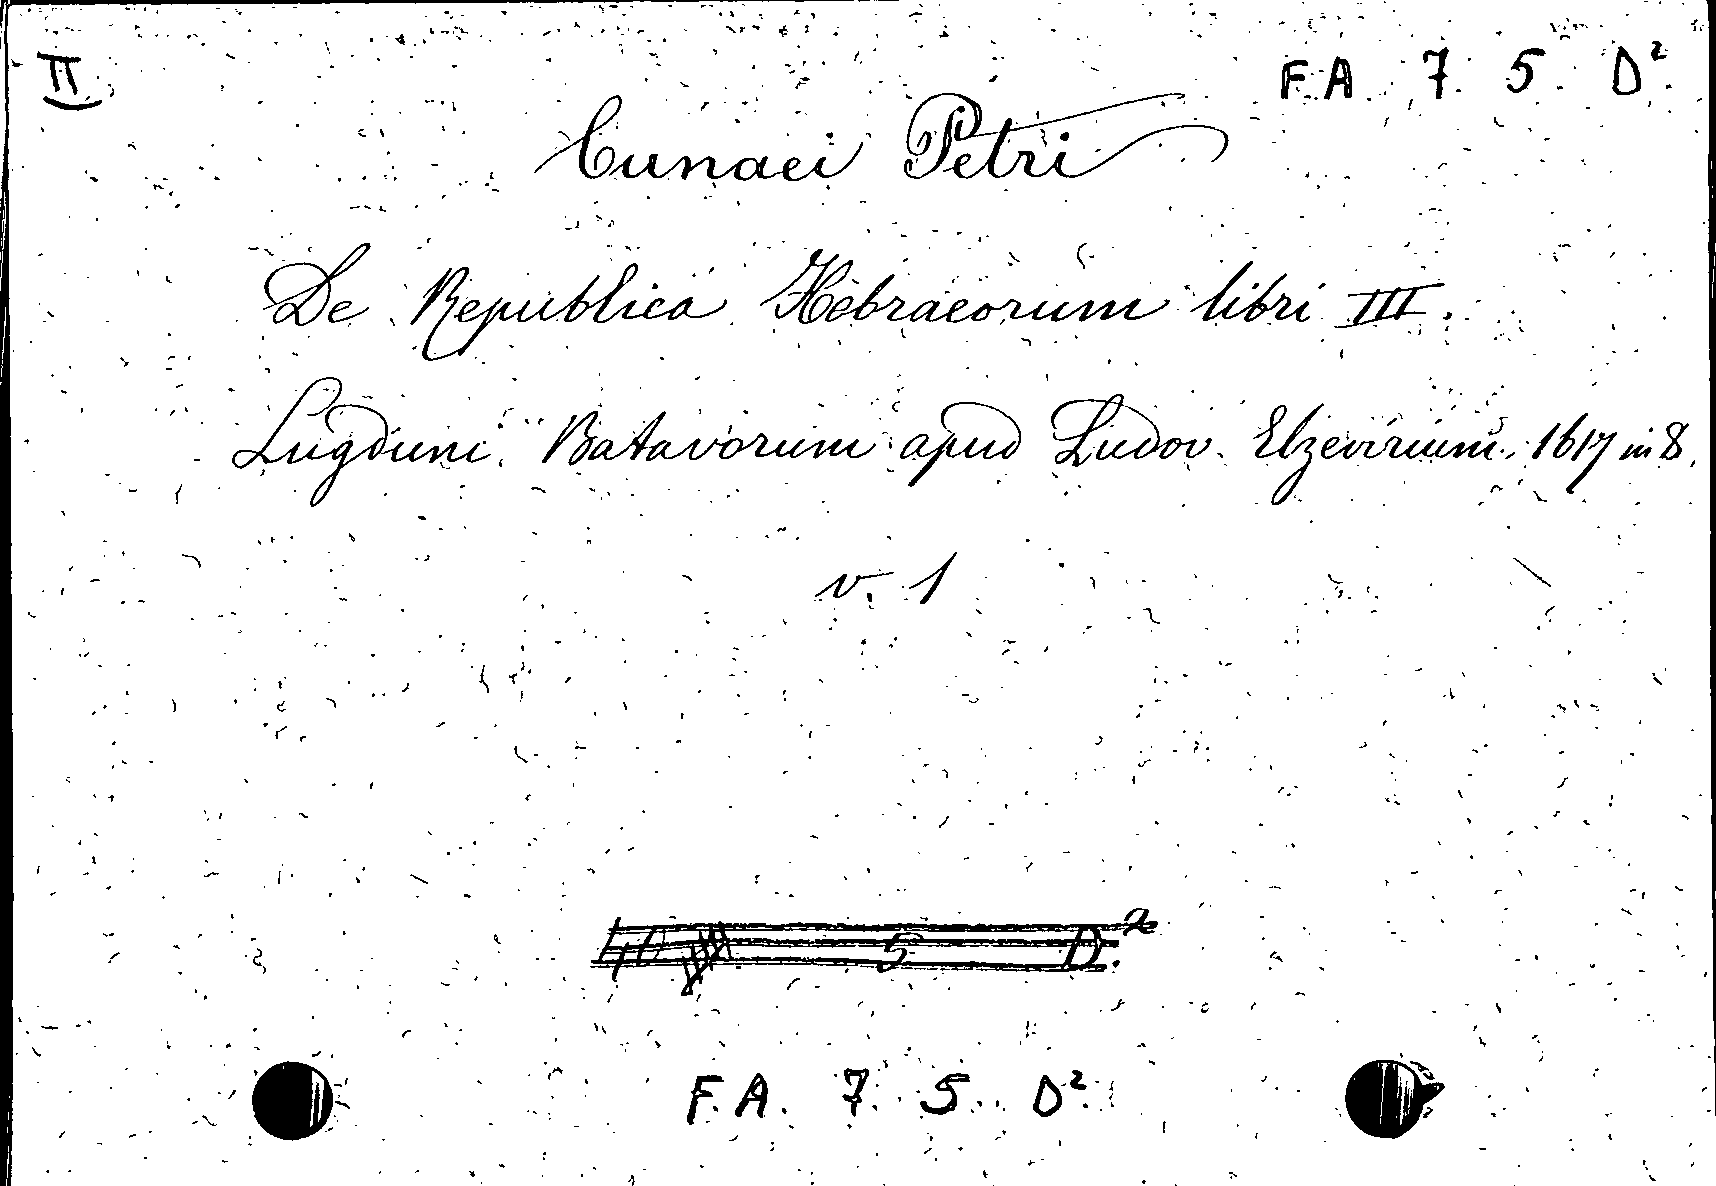 II
F. A. 7. 5. D²
Cunaei Petri
De Republica Hebraeorum libri III.
Lugduni Batavorum apud Ludov. Elzevirium. 1617 in 8.
v. 1
5 D.
F. A. 7. 5. D²